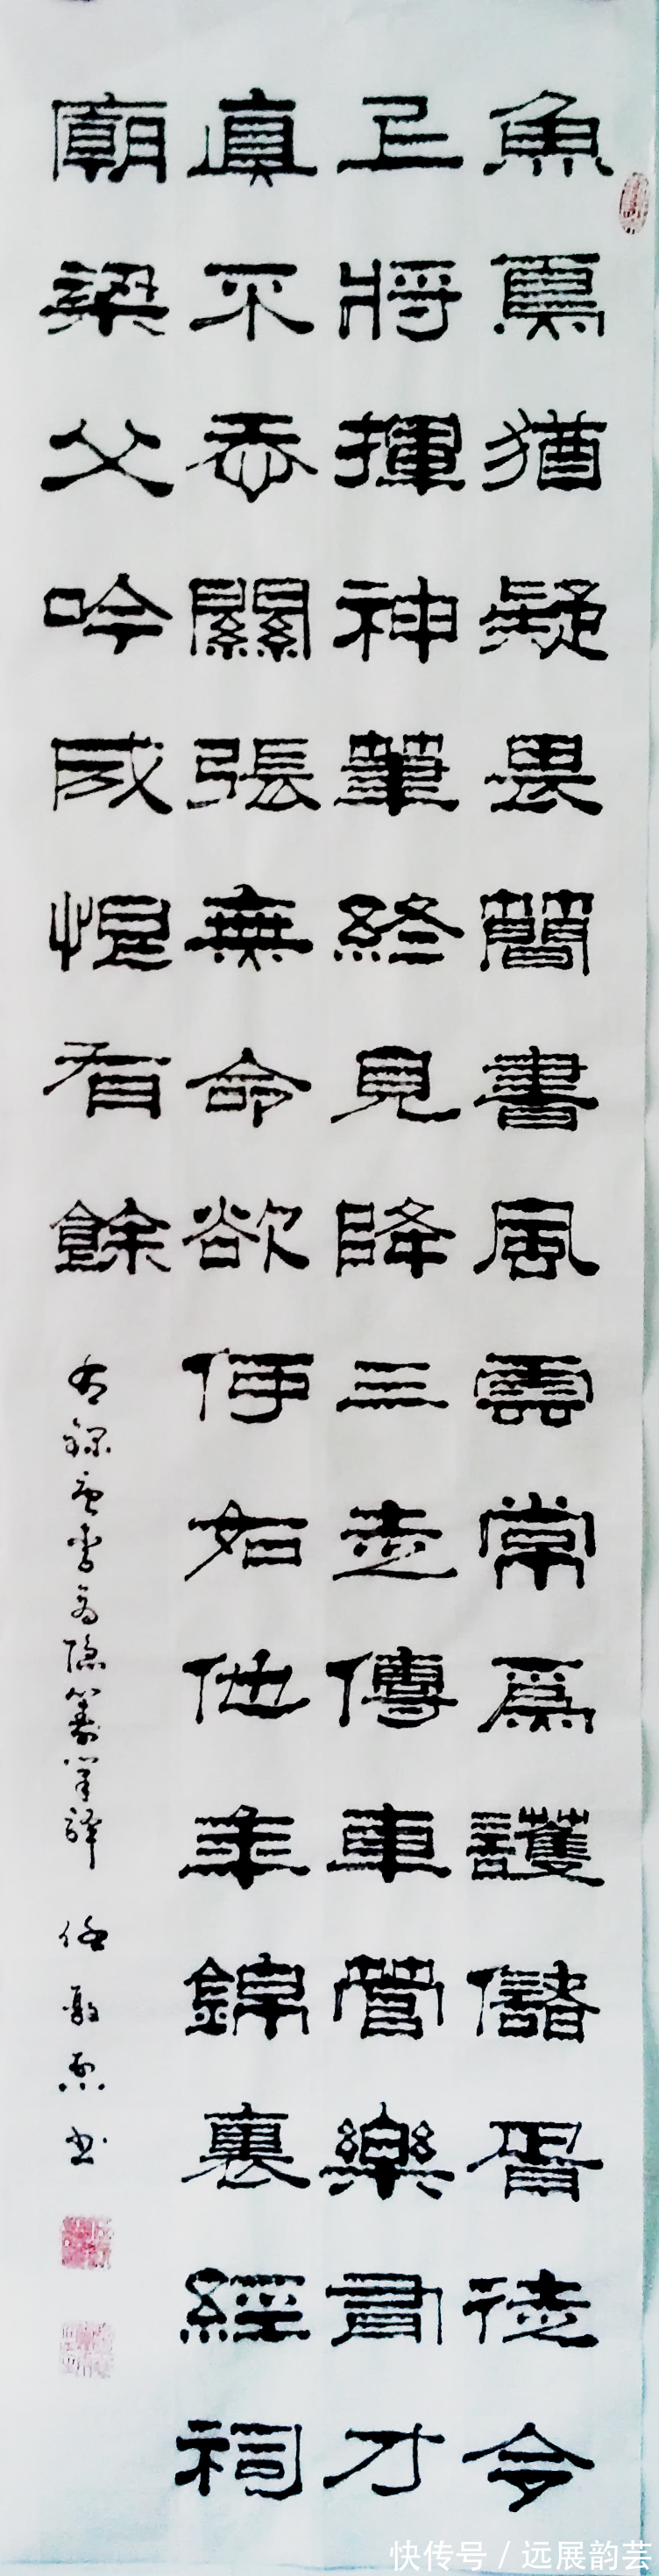 魚鳥猶疑畏簡書風雲常爲護儲胥徒令
上將揮神筆終見降王走傳車管樂有才
真不忝關張無命欲何如他年錦裏經祠
廟梁父吟成恨有餘
右錄唐李商隱籌筆驛 任 书
快传号/远展韵芸